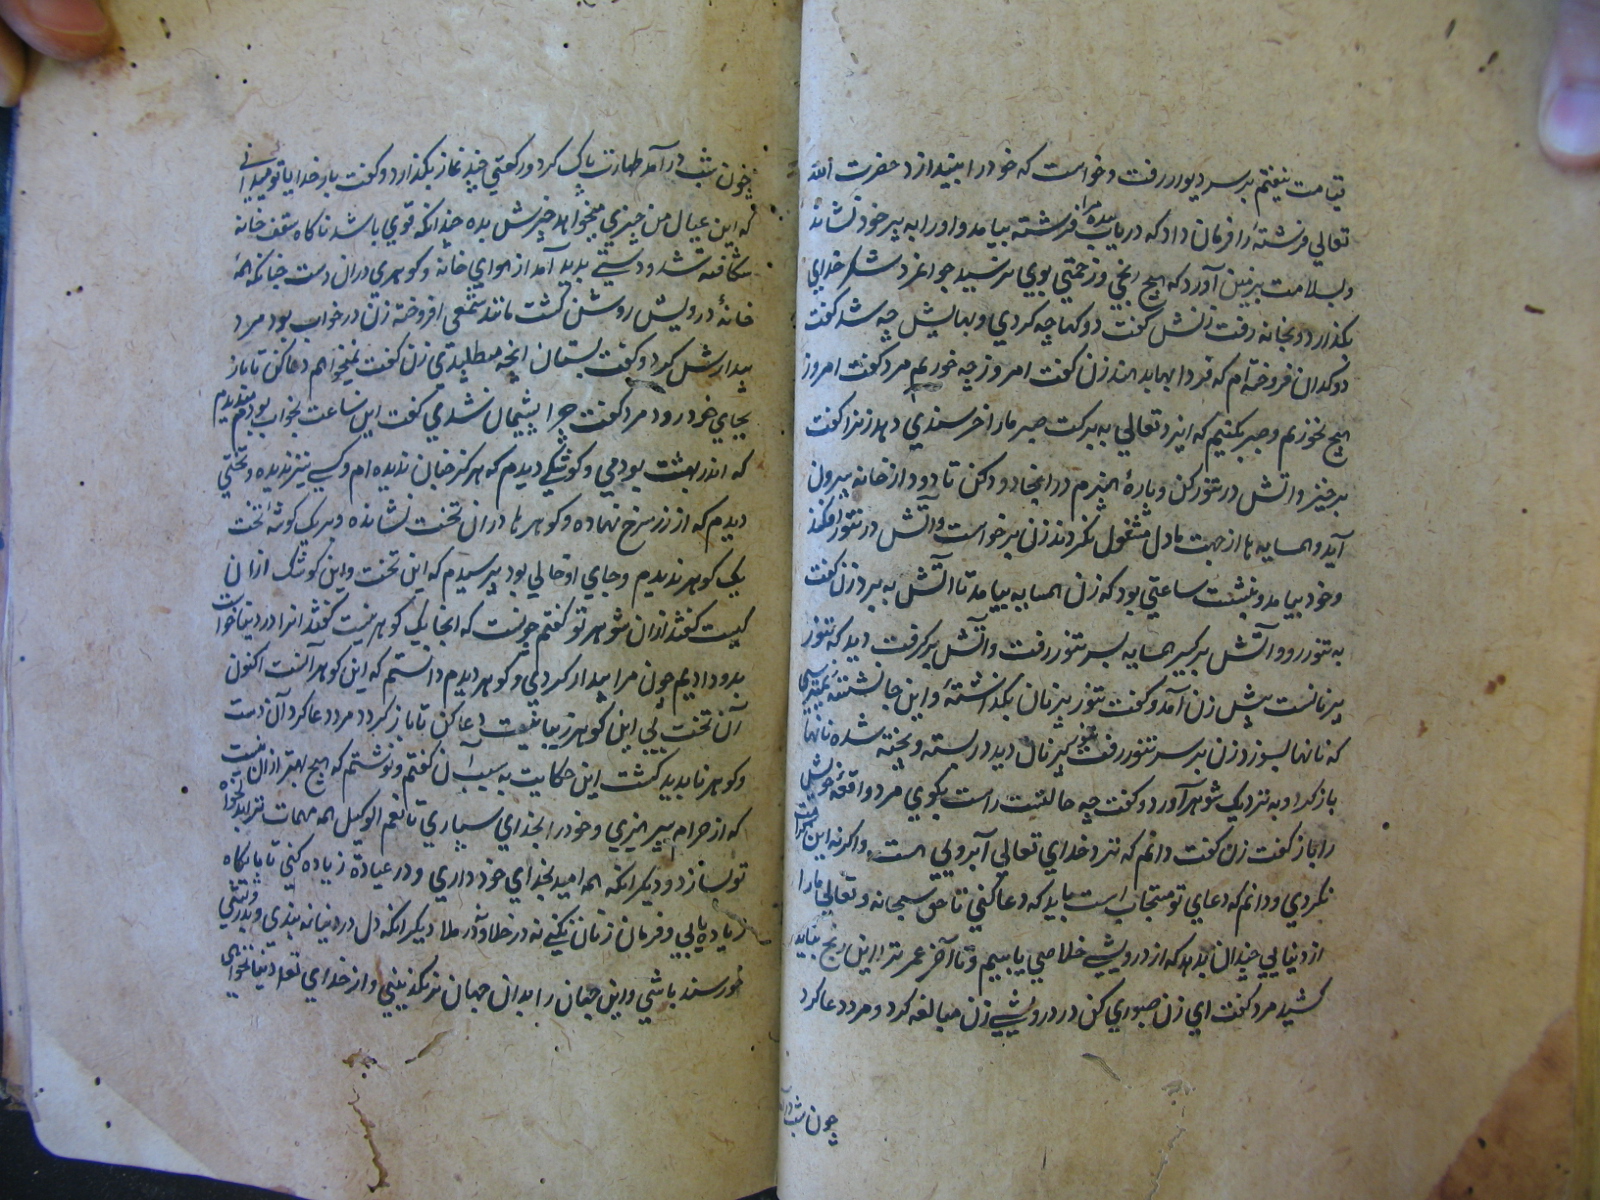 قیامت نیفتم بر سر دیوار رفت و خواست که خود را بیندازد حضرت الله
تعالی فرشتهٔ را فرمان داد که دریاب بنده مرا فرشته بیامد و او را به پر خود نشاند
و بسلامت بزمین آورد که هیچ رنجی و زحمتی بوی نرسید جوانمرد شکر خدای
بگذارد و بخانه رفت زنش گفت دوکها چه کردی و بهایش چه شد گفت
دوکدان فروخته ام که فردا بها بدهند زن گفت امروز چه خوریم مرد گفت امروز
هیچ نخوریم و صبر بکنیم که ایزد تعالی به برکت صبر ما را خرسندی دهد زنرا گفت
برخیز و اتش در تنور کن و پارهٔ هیزم در انجا دود کن تا دود از خانه بیرون
آید و همسایه ها از جهت ما دل مشغول نکردند زن برخواست و آتش در تنور افکند
و خود بیامد و بنشت ساعتی بود که زن همسایه بیامد تا آتش به برد زن گفت
به تنور رو و آتش برگیر همسایه بسر تنور رفت و آتش برگرفت دید که تنور
پر نانست پیش زن آمد و گفت تنور پر نان بگذاشتهٔ و این جا نشستهٔ
که نانها بسوزد زن بر سر تنور رفت تنور پر نان دید در بسته و پخته شده نانها
باز کرد و به نزدیک شوهر آورد و گفت چه حالتست راست بگوی مرد واقعهٔ خویش
را باز گفت زن گفت دانم که نزد خدای تعالی آبرویی هست و اگرنه این
نکردی و دانم که دعای تو مستجاب است باید که دعا کنی تا حق سبحانه و تعالی ما را
از دنیایی چندان بدهد که از درویشی خلاصی یابیم و تا آخر عمر ترا این رنج نباید
کشید مرد گفت ای زن صبوری کن در درویشی زن مبالغه کرد و مرد دعا کرد
چون شب در
چون شب در آمد طهارت پاک کرد و رکعتی چند نماز بگذارد و گفت بار خدایا تو میدانی
که این عیال من چیزی میخواهد چیزش بده چندانکه قوی باشد ناگاه سقف خانه
شکافته شد و دستی پدید آمد از هوای خانه و گوهری دران دست چنانکه همهٔ
خانهٔ درویش روشن گشت مانند شمعی افروخته زن در خواب بود مرد
بیدارش کرد و گفت بستان انچه میطلبدی زن گفت نمیخواهم دعا کن تا باز
بجای خود رود مرد گفت چرا پشیمان شدی گفت این ساعت بخواب بودم میدیدم
که اندر بهشت بودمی و کوشکی دیدم که هرگز چنان ندیده ام و کسی نیز ندیده و تختی
دیدم که از زر سرخ نهاده و گوهر ها دران تخت نشانده و بر یک گوشهٔ تخت
یک گوهر ندیدم و جای او خالی بود پرسیدم که این تخت و این کوشک ازان
کیست گفتند ازان شوهر تو گفتم چونست که انجا یک گوهر نیست گفتند انرا در دنیا خواست
بدو دادیم چون مرا بیدار کردی و گوهر دیدم دانستم که این گوهر آنست اکنون
آن تخت بی این گوهر زیبا نیست دعا کن تا باز گردد مرد دعا کرد آن دست
و گوهر ناپدید گشت این حکایت به سبب آن گفتم و نوشتم که هیچ بهتر ازان نیست
که از حرام بپرهیزی و خود را بخدای سپاری تا نعم الوکیل همه مهمات
تو بسازد و دیگر انکه همه امید بخدای خود داری و در عبادة زیاده کنی تا پایگاه
زیاده یابی و فرمان زنان نکنی نه در خلا و نه در ملا دیگر انکه دل در دنیا نه بندی و بدرویشی
خورسند باشی و این جهان را بدان جهان نر نگذینی و از خدای تعالی دنیا نخواهی